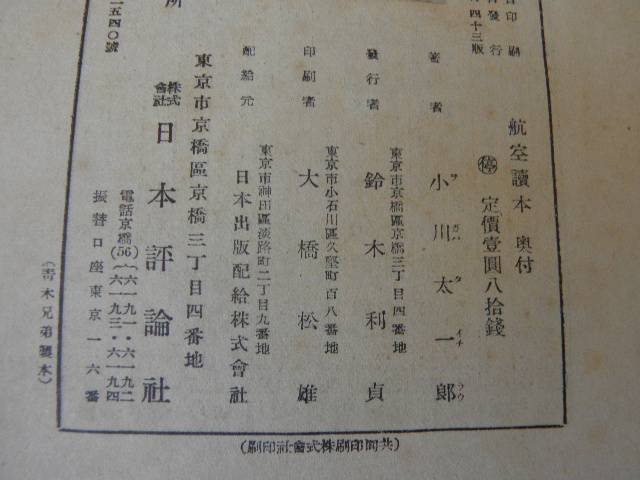 日印刷
日發行
四十三版
航空讀本 奧付
停 定價壹圓八拾錢
著者 小川太一郎
東京市京橋區京橋三丁目四番地
發行者 鈴木利貞
東京市小石川區久堅町百八番地
印刷者 大橋松雄
東京市神田區淡路町二丁目九番地
配給元 日本出版配給株式會社
東京市京橋區京橋三丁目四番地
所 株式會社 日本評論社
電話京橋(56){六一九一・六一九二
六一九三・六一九四
振替口座東京一六番
一五四〇號
(青木兄弟製本)
(共同印刷株式會社印刷)